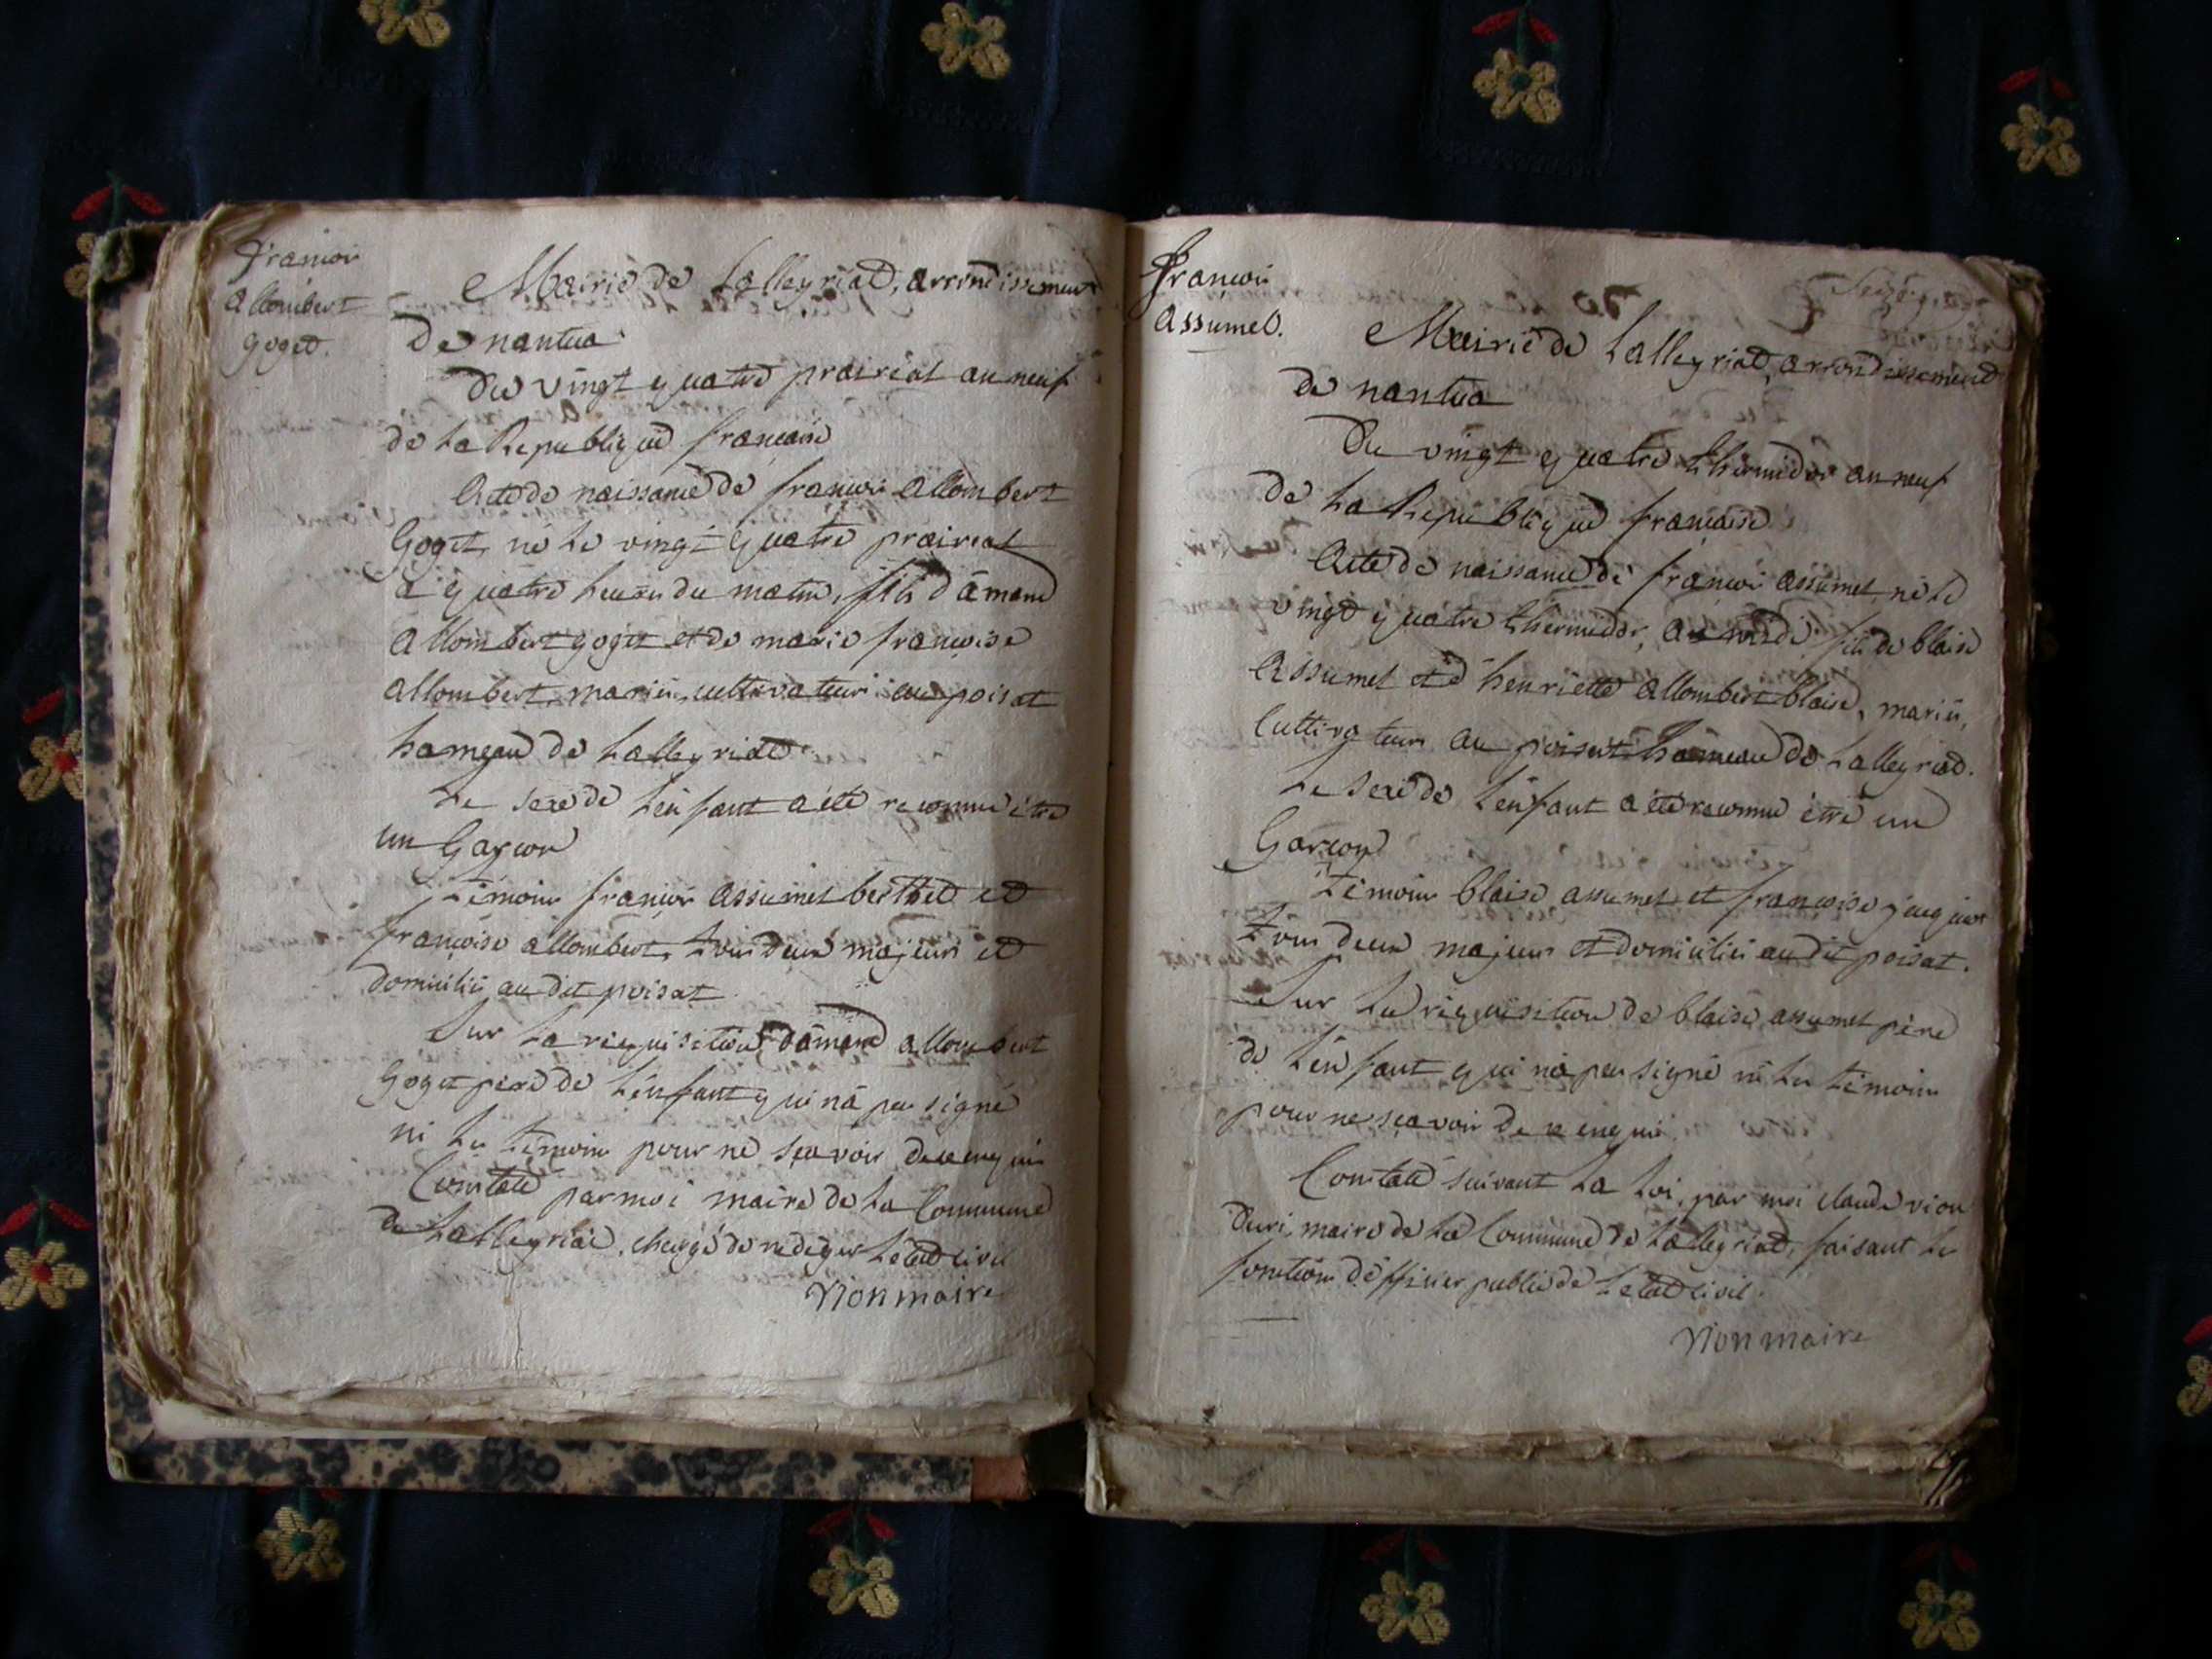 françois
allombert
goget.
Mairie de Lalleyriat, arrondissement
De nantua
Du vingt quatre prairial an neuf
de La Republique francaise
Acte de naissance de francois allombert
Goget, né le vingt quatre prairial
a quatre heures du matin, fils d'amand
allombert goget et de marie francoise
allombert, mariés, cultivateurs au poisat
hameau de Lalleyriat
Le sexe de L'enfant a été reconnu être
un Garcon
Témoins francois assumel berthet et
francoise allombert, tous deux majeurs et
domiciliés au dit poisat
Sur La requisition d'amand allombert
Goget pere de L'enfant qui n'a peu signé
ni Les témoins pour ne sçavoir de ce enquis
Constaté par moi maire de La Commune
de Lalleyriat, chargé de rediger L'etat civil
Vion maire
françois
assumel.
Seize
Mairie de Lalleyriat, arrondissement
de nantua
Du vingt quatre thermidor an neuf
de La Republique francaise
Acte de naissance de françois assumel, né le
vingt quatre thermidor, a midi fils de blaise
assumel et d'henriette allombert blaise, mariés,
Cultivateurs au poisat hameau de Lalleyriat.
Le sexe de L'enfant a été reconnu être un
Garcon
Témoins blaise assumel et francoise
tous deux majeurs et domiciliés au dit poisat.
Sur La requisition de blaise assumel père
de L'enfant qui n'a peu signé ni Les témoins
pour ne sçavoir de ce enquis
Constaté suivant La Loi, par moi claude vion
Duri, maire de La Commune de Lalleyriat, faisant Les
fonctions d'officier public de L'etat civil.
Vion maire